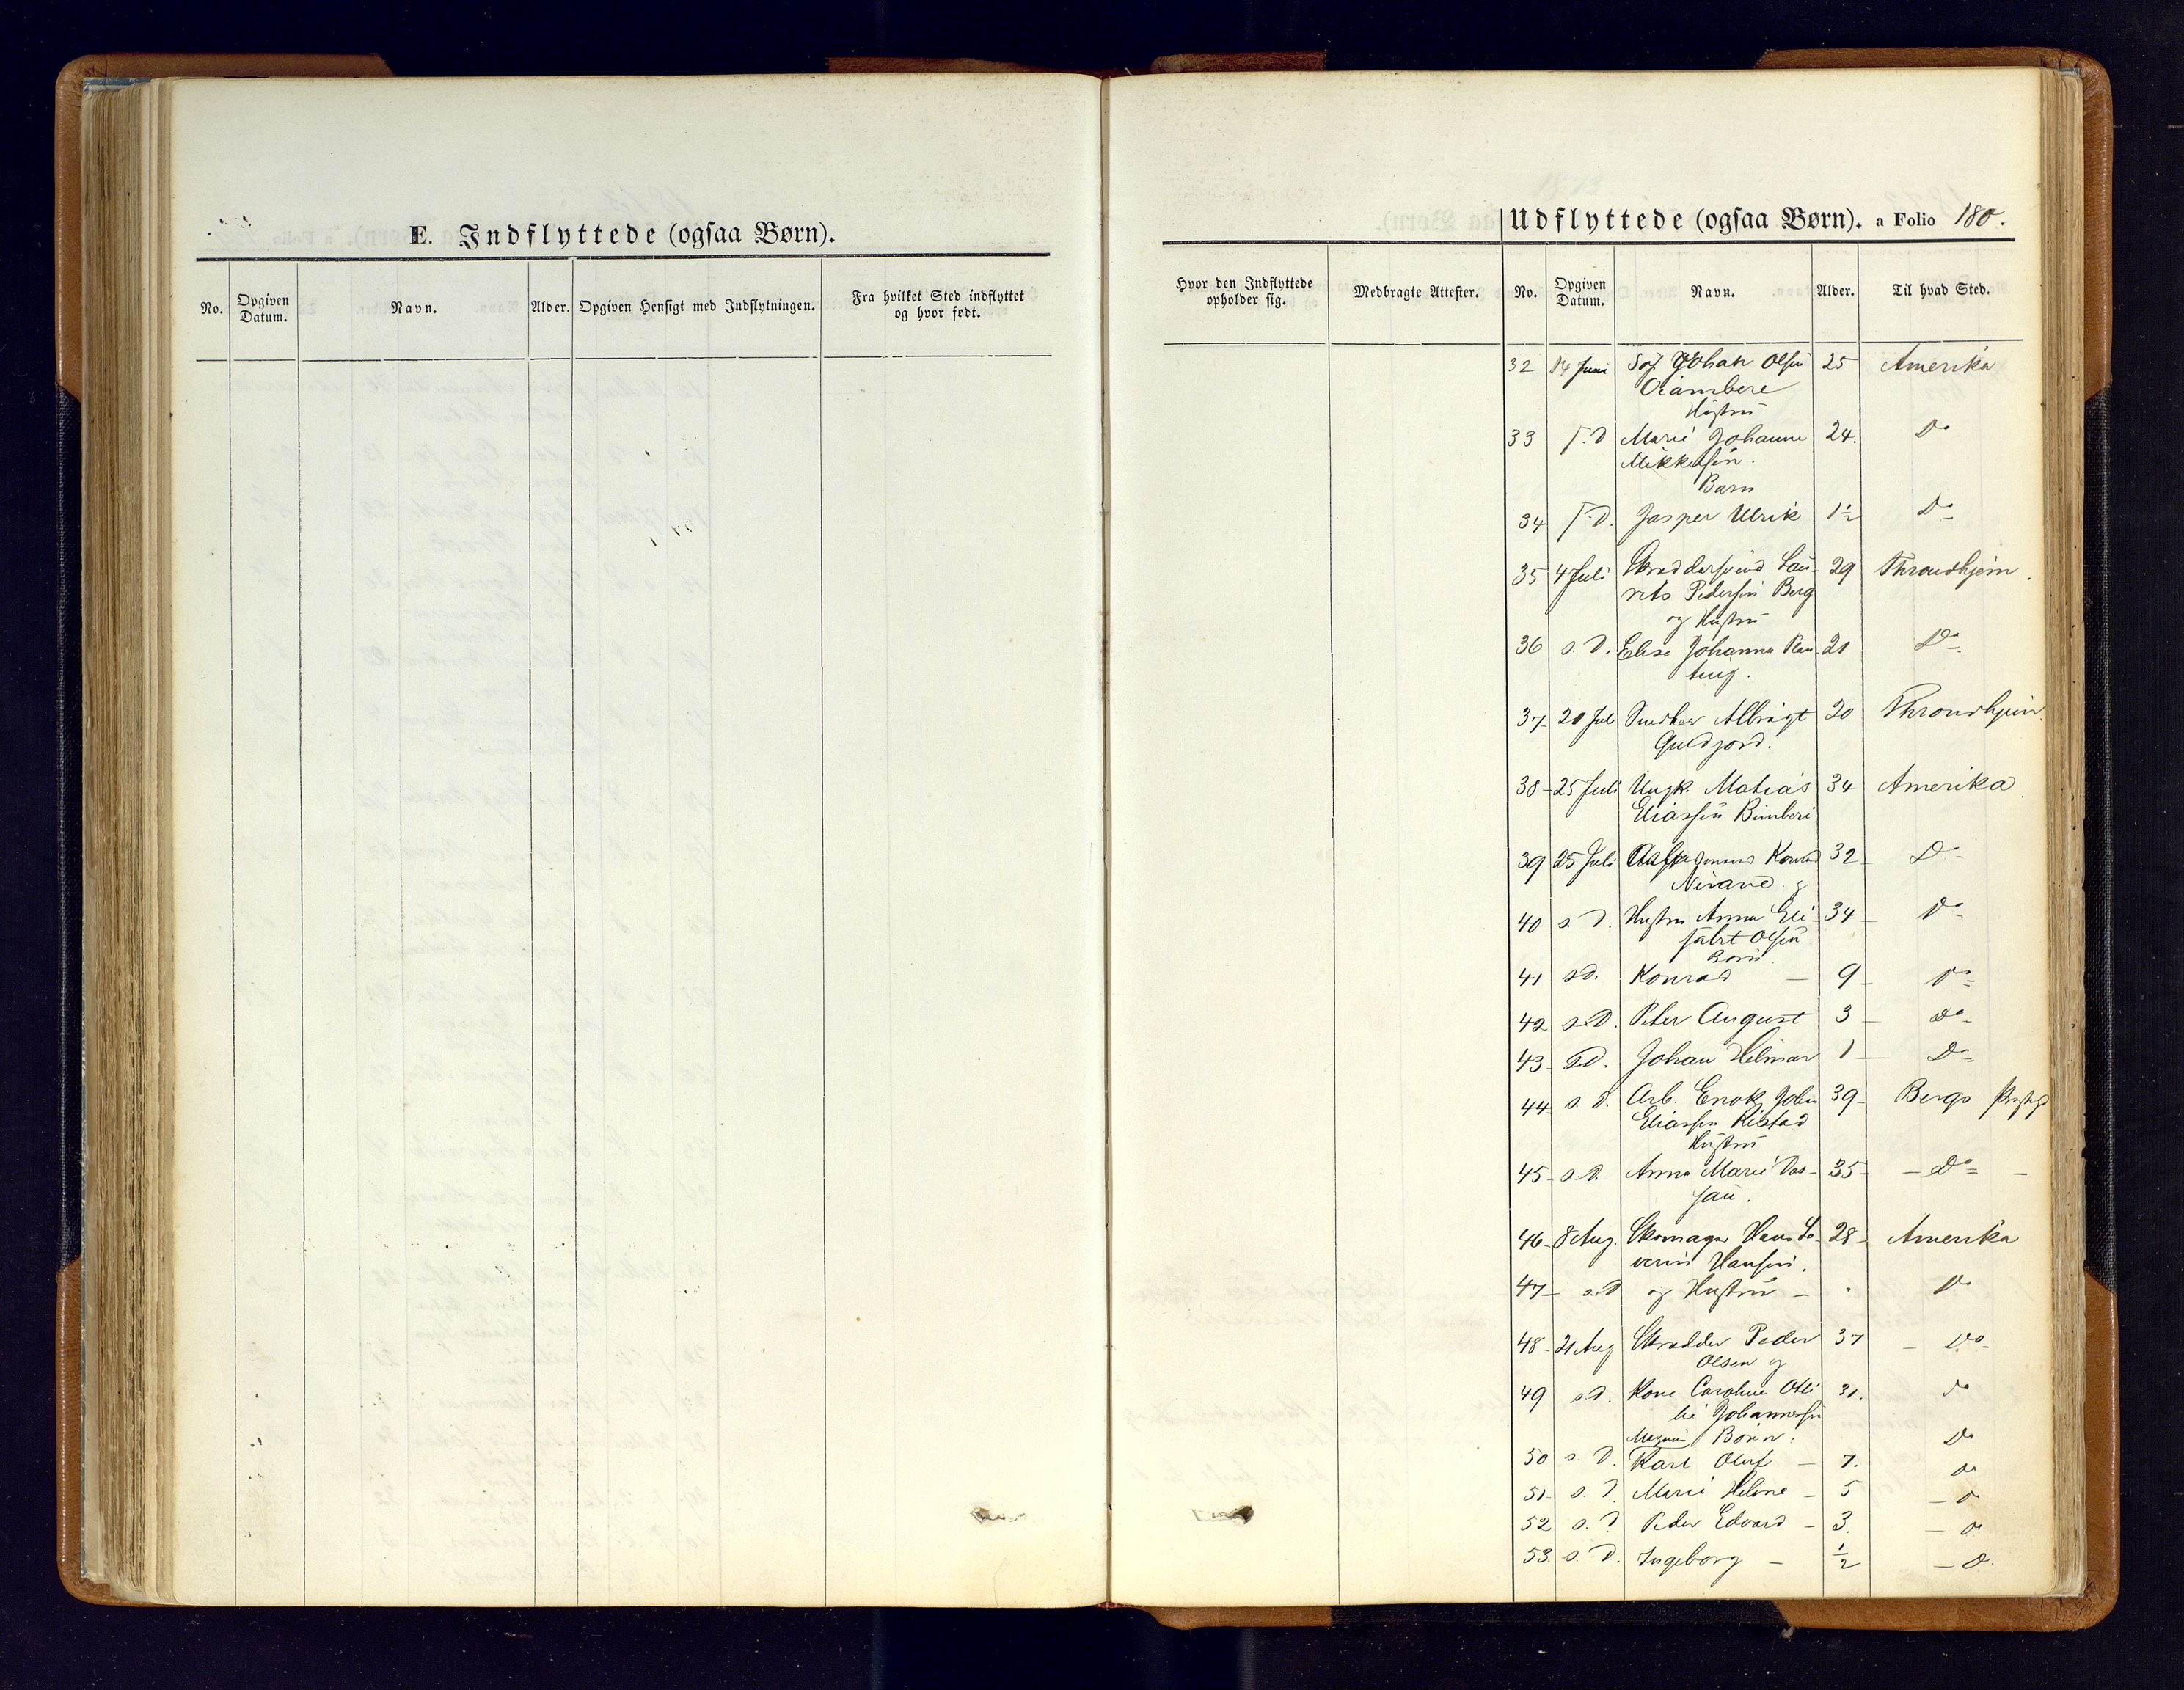 E. Indflyttede (ogsaa Børn).
No. Opgiven Datum. Navn. Alder. Opgiven Hensigt med Indflytningen. Fra hvilket Sted indflyttet og hvor født.
Udflyttede (ogsaa Børn). a Folio 180.
Hvor den Indflyttede opholder sig. Medbragte Attester. No. Opgiven Datum. Navn. Alder. Til hvad Sted.
32 14 Juni Johan Olsen 25 Amerika
Hustru
33 s. D Marie Johanne 24. Do
Mikkelsen.
Barn
34 s. D. Jasper Ulrik 1½ Do
35 4 Juli Skræddersvend Lau- 29 Throndhjem.
rits Pedersen Berg
og Hustru
36 s. D. Elise Johanna 21 Do
37 20 Juli Albrigt 20 Throndhjem
38 25 Juli Ungk. Matias 34 Amerika
Eliassen
39 25 Juli Konrad 32 Do
og
40 s. D. Hustru Anna Eli- 34 Do
sabet Olsen
Børn
41 s.D. Konrad 9 Do
42 s.D. Peter August 3 Do
43 s.D. Johan Hilmar 1 Do
44 s. D. Arb. Enok John 39 Bergs
Eliassen
Hustru
45 s.D. Anna Marie 35 Do
46 8 Aug. Skomager Hans Se- 28 Amerika
verin Hansen.
47 s.D og Hustru Do
48 21 Aug Skrædder Peder 37 Do
Olsen og
49 s.D. Kone Caroline Otti- 31. Do
lie Johannessen
Børn. Do
50 s. D. Karl Oluf 7. Do
51 s. D. Marie Helene 5 D
52 s. D Peder Edvard 3. Do
53. s. D. Ingeborg ½ D.